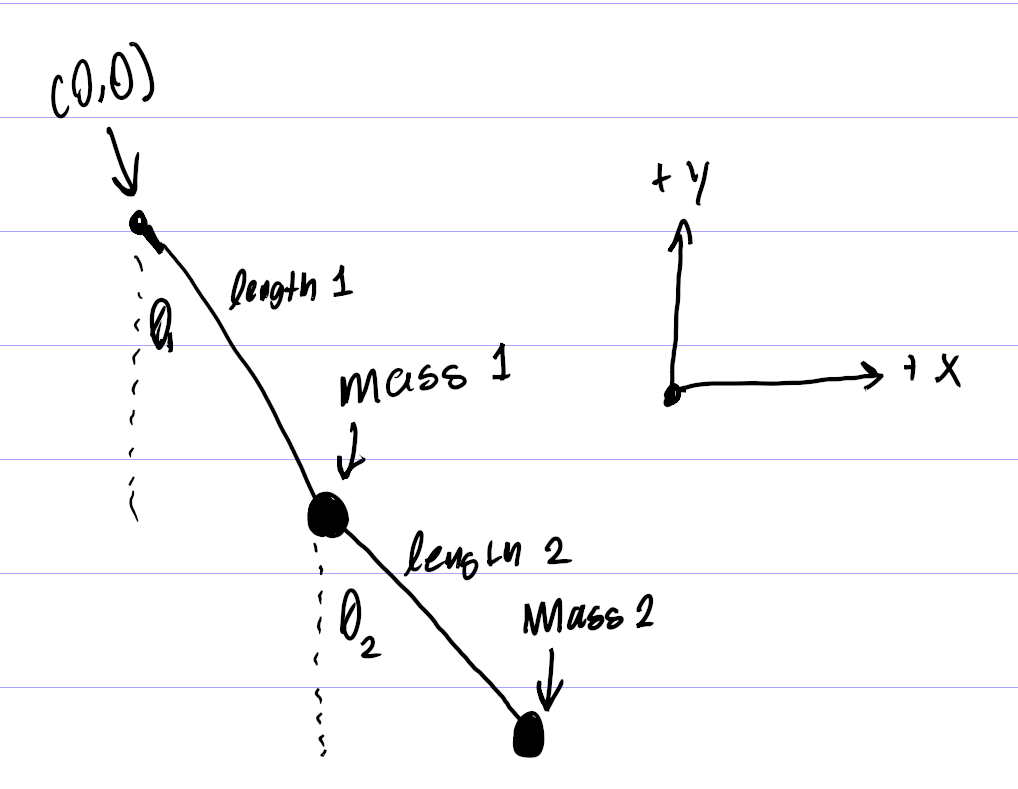 (0,0)
+ y
length 1
θ₁
mass 1
+ x
length 2
θ₂
Mass 2